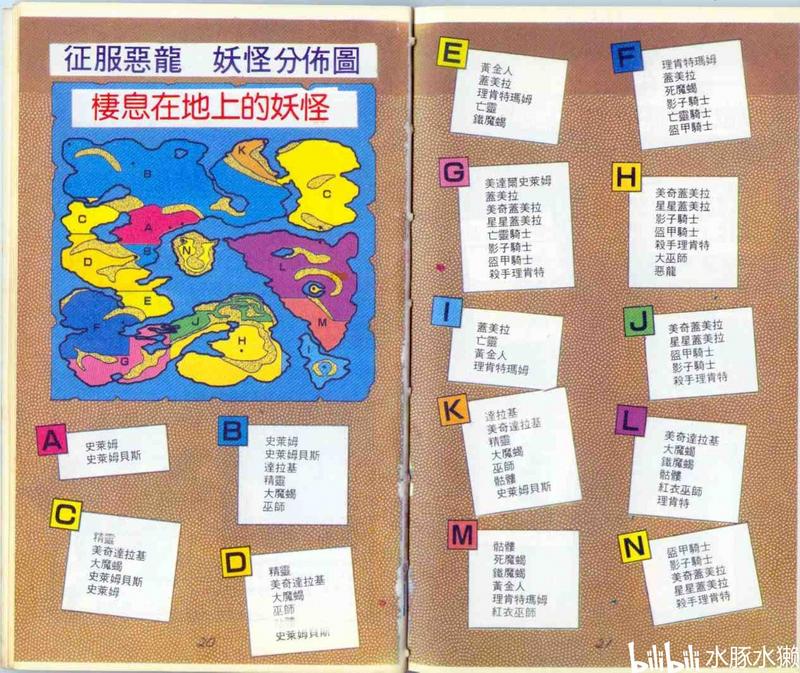 征服惡龍 妖怪分佈圖
棲息在地上的妖怪
B
K
C
C
A
B
N
D
L
E
F
J
M
H
I
G
A
史萊姆
史萊姆貝斯
B
史萊姆
史萊姆貝斯
達拉基
精靈
大魔蝎
巫師
C
精靈
美奇達拉基
大魔蝎
史萊姆貝斯
史萊姆
D
精靈
美奇達拉基
大魔蝎
巫師
史萊姆貝斯
20
E
黃金人
蓋美拉
理肯特瑪姆
亡靈
鐵魔蝎
F
理肯特瑪姆
蓋美拉
死魔蝎
影子騎士
亡靈騎士
盔甲騎士
G
美達爾史萊姆
蓋美拉
美奇蓋美拉
星星蓋美拉
亡靈騎士
影子騎士
盔甲騎士
殺手理肯特
H
美奇蓋美拉
星星蓋美拉
影子騎士
盔甲騎士
殺手理肯特
大巫師
惡龍
I
蓋美拉
亡靈
黃金人
理肯特瑪姆
J
美奇蓋美拉
星星蓋美拉
盔甲騎士
影子騎士
殺手理肯特
K
達拉基
美奇達拉基
精靈
大魔蝎
巫師
骷髏
史萊姆貝斯
L
美奇達拉基
大魔蝎
鐵魔蝎
骷髏
紅衣巫師
理肯特
M
骷髏
死魔蝎
鐵魔蝎
黃金人
理肯特瑪姆
紅衣巫師
N
盔甲騎士
影子騎士
美奇蓋美拉
星星蓋美拉
殺手理肯特
21
bilibili 水豚水獭